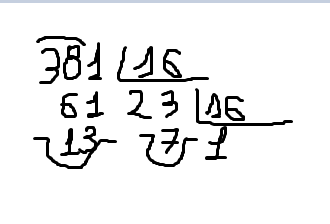 381 16
61 23 16
13 7 1